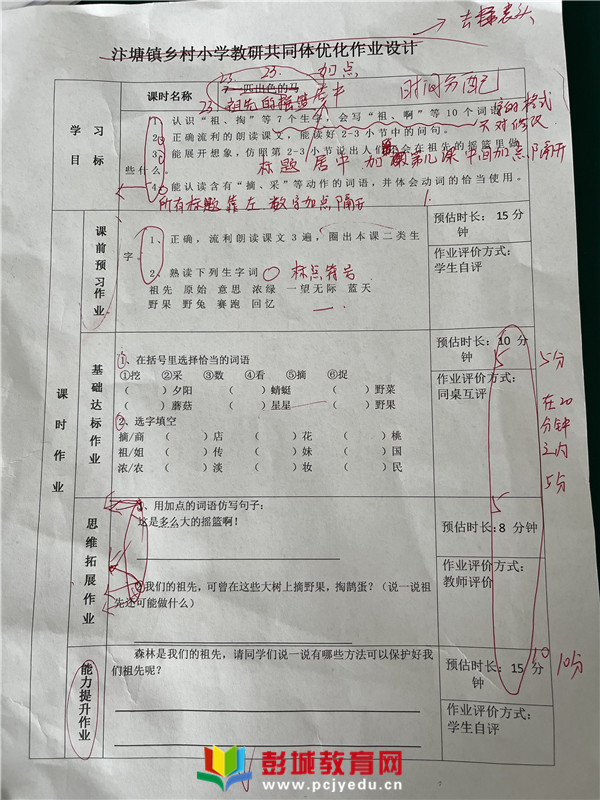 去掉表头
汴塘镇乡村小学教研共同体优化作业设计
23. 加点
课时名称
匹出色的马
23 祖先的摇篮 居中
时间分配
学习目标
1、认识“祖、掏”等7个生字，会写“祖、啊”等10个词语
2、正确流利的朗读课文，能读好2-3小节中的问句。
3、能展开想象，仿照第2-3小节说出人们还会在祖先的摇篮里做些什么。
4、能认读含有“摘、采”等动作的词语，并体会动词的恰当使用。
字的格式不对修改
标题 居中 加 第几课 中间加点隔开
所有标题靠左 数字加点隔开
课时作业
课前预习作业
1、正确，流利朗读课文3遍，圈出本课二类生字。
2、熟读下列生字词
标点符号
祖先 原始 意思 浓绿 一望无际 蓝天
野果 野兔 赛跑 回忆
预估时长：15分钟
作业评价方式：学生自评
基础达标作业
1、在括号里选择恰当的词语
①挖 ②采 ③数 ④看 ⑤摘 ⑥捉
（ ）夕阳 （ ）蜻蜓 （ ）野菜
（ ）蘑菇 （ ）星星 （ ）野果
2、选字填空
摘/商 （ ）店 （ ）花 （ ）桃
祖/姐 （ ）传 （ ）妹 （ ）国
浓/农 （ ）淡 （ ）妆 （ ）民
预估时长：10分钟
5
5分
作业评价方式：同桌互评
在20分钟之内
5分
思维拓展作业
1、用加点的词语仿写句子：
这是多么大的摇篮啊！
2我们的祖先，可曾在这些大树上摘野果，掏鹊蛋？（说一说祖先还可能做什么）
5
预估时长:8 分钟
作业评价方式：教师评价
能力提升作业
森林是我们的祖先，请同学们说一说有哪些方法可以保护好我们祖先呢？
预估时长：15分钟
10
10分
作业评价方式：学生自评
彭城教育网
www.pcjyedu.cn